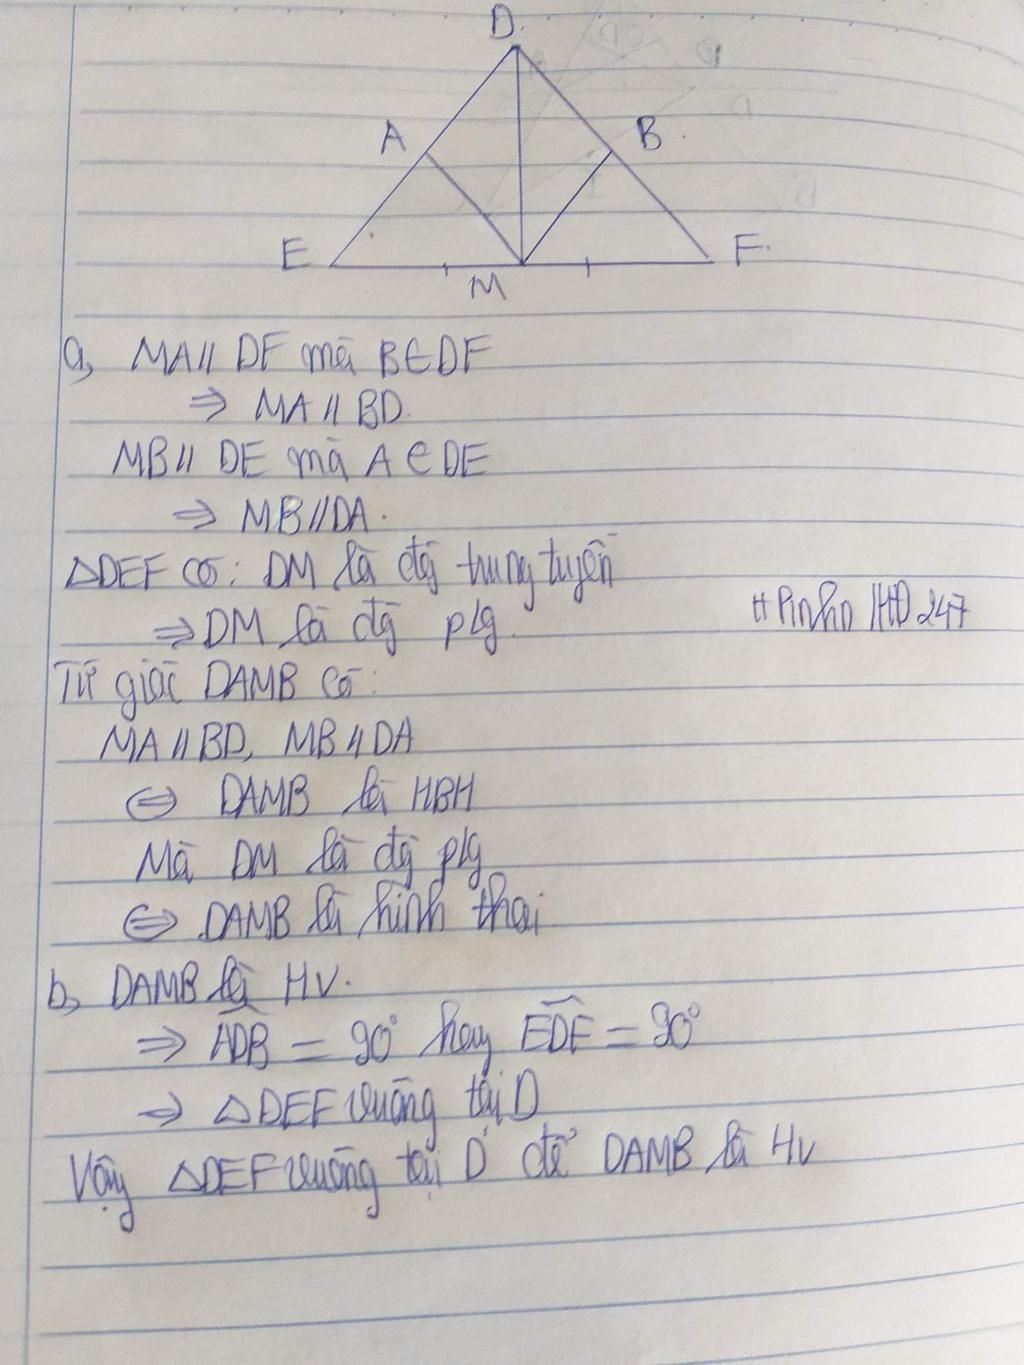 D.
A
B
E
F.
M
a, MA // DF mà B ∈ DF
⇒ MA // BD.
MB // DE mà A ∈ DE
⇒ MB // DA.
△DEF có: DM là đg̀ trung tuyến
⇒ DM là đg̀ p/g.
Tứ giác DAMB có:
MA // BD, MB // DA
⇔ DAMB là HBH
Mà DM là đg̀ p/g
⇔ DAMB là hình thoi
b, DAMB là HV.
⇒ ADB = 90° hay EDF = 90°
⇒ △DEF vuông tại D
Vậy △DEF vuông tại D để DAMB là HV